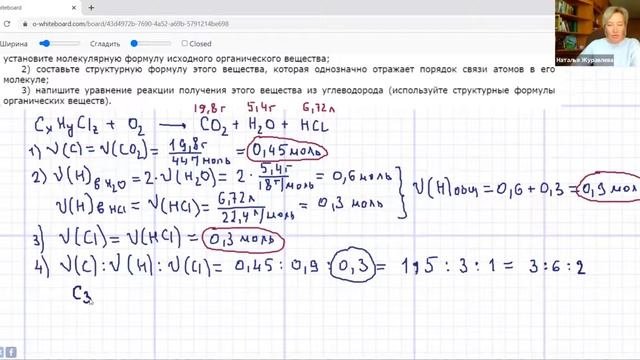 o-whiteboard.com/board/43d4972b-7690-4a52-a69b-5791214be698
Ширина Сгладить Closed
установите молекулярную формулу исходного органического вещества;
2) составьте структурную формулу этого вещества, которая однозначно отражает порядок связи атомов в его
молекуле;
3) напишите уравнение реакции получения этого вещества из углеводорода (используйте структурные формулы
органических веществ).
19,8г 5,4г 6,72л
CxHyClz + O2 → CO2 + H2O + HCl
1) ν(C) = ν(CO2) = 19,8г / 44г/моль = 0,45 моль
2) ν(H) в H2O = 2·ν(H2O) = 2· 5,4г / 18г/моль = 0,6 моль
ν(H) в HCl = ν(HCl) = 6,72л / 22,4л/моль = 0,3 моль
ν(H)общ = 0,6 + 0,3 = 0,9 мол
3) ν(Cl) = ν(HCl) = 0,3 моль
4) ν(C) : ν(H) : ν(Cl) = 0,45 : 0,9 : 0,3 = 1,5 : 3 : 1 = 3:6:2
C3
Наталья Журавлева